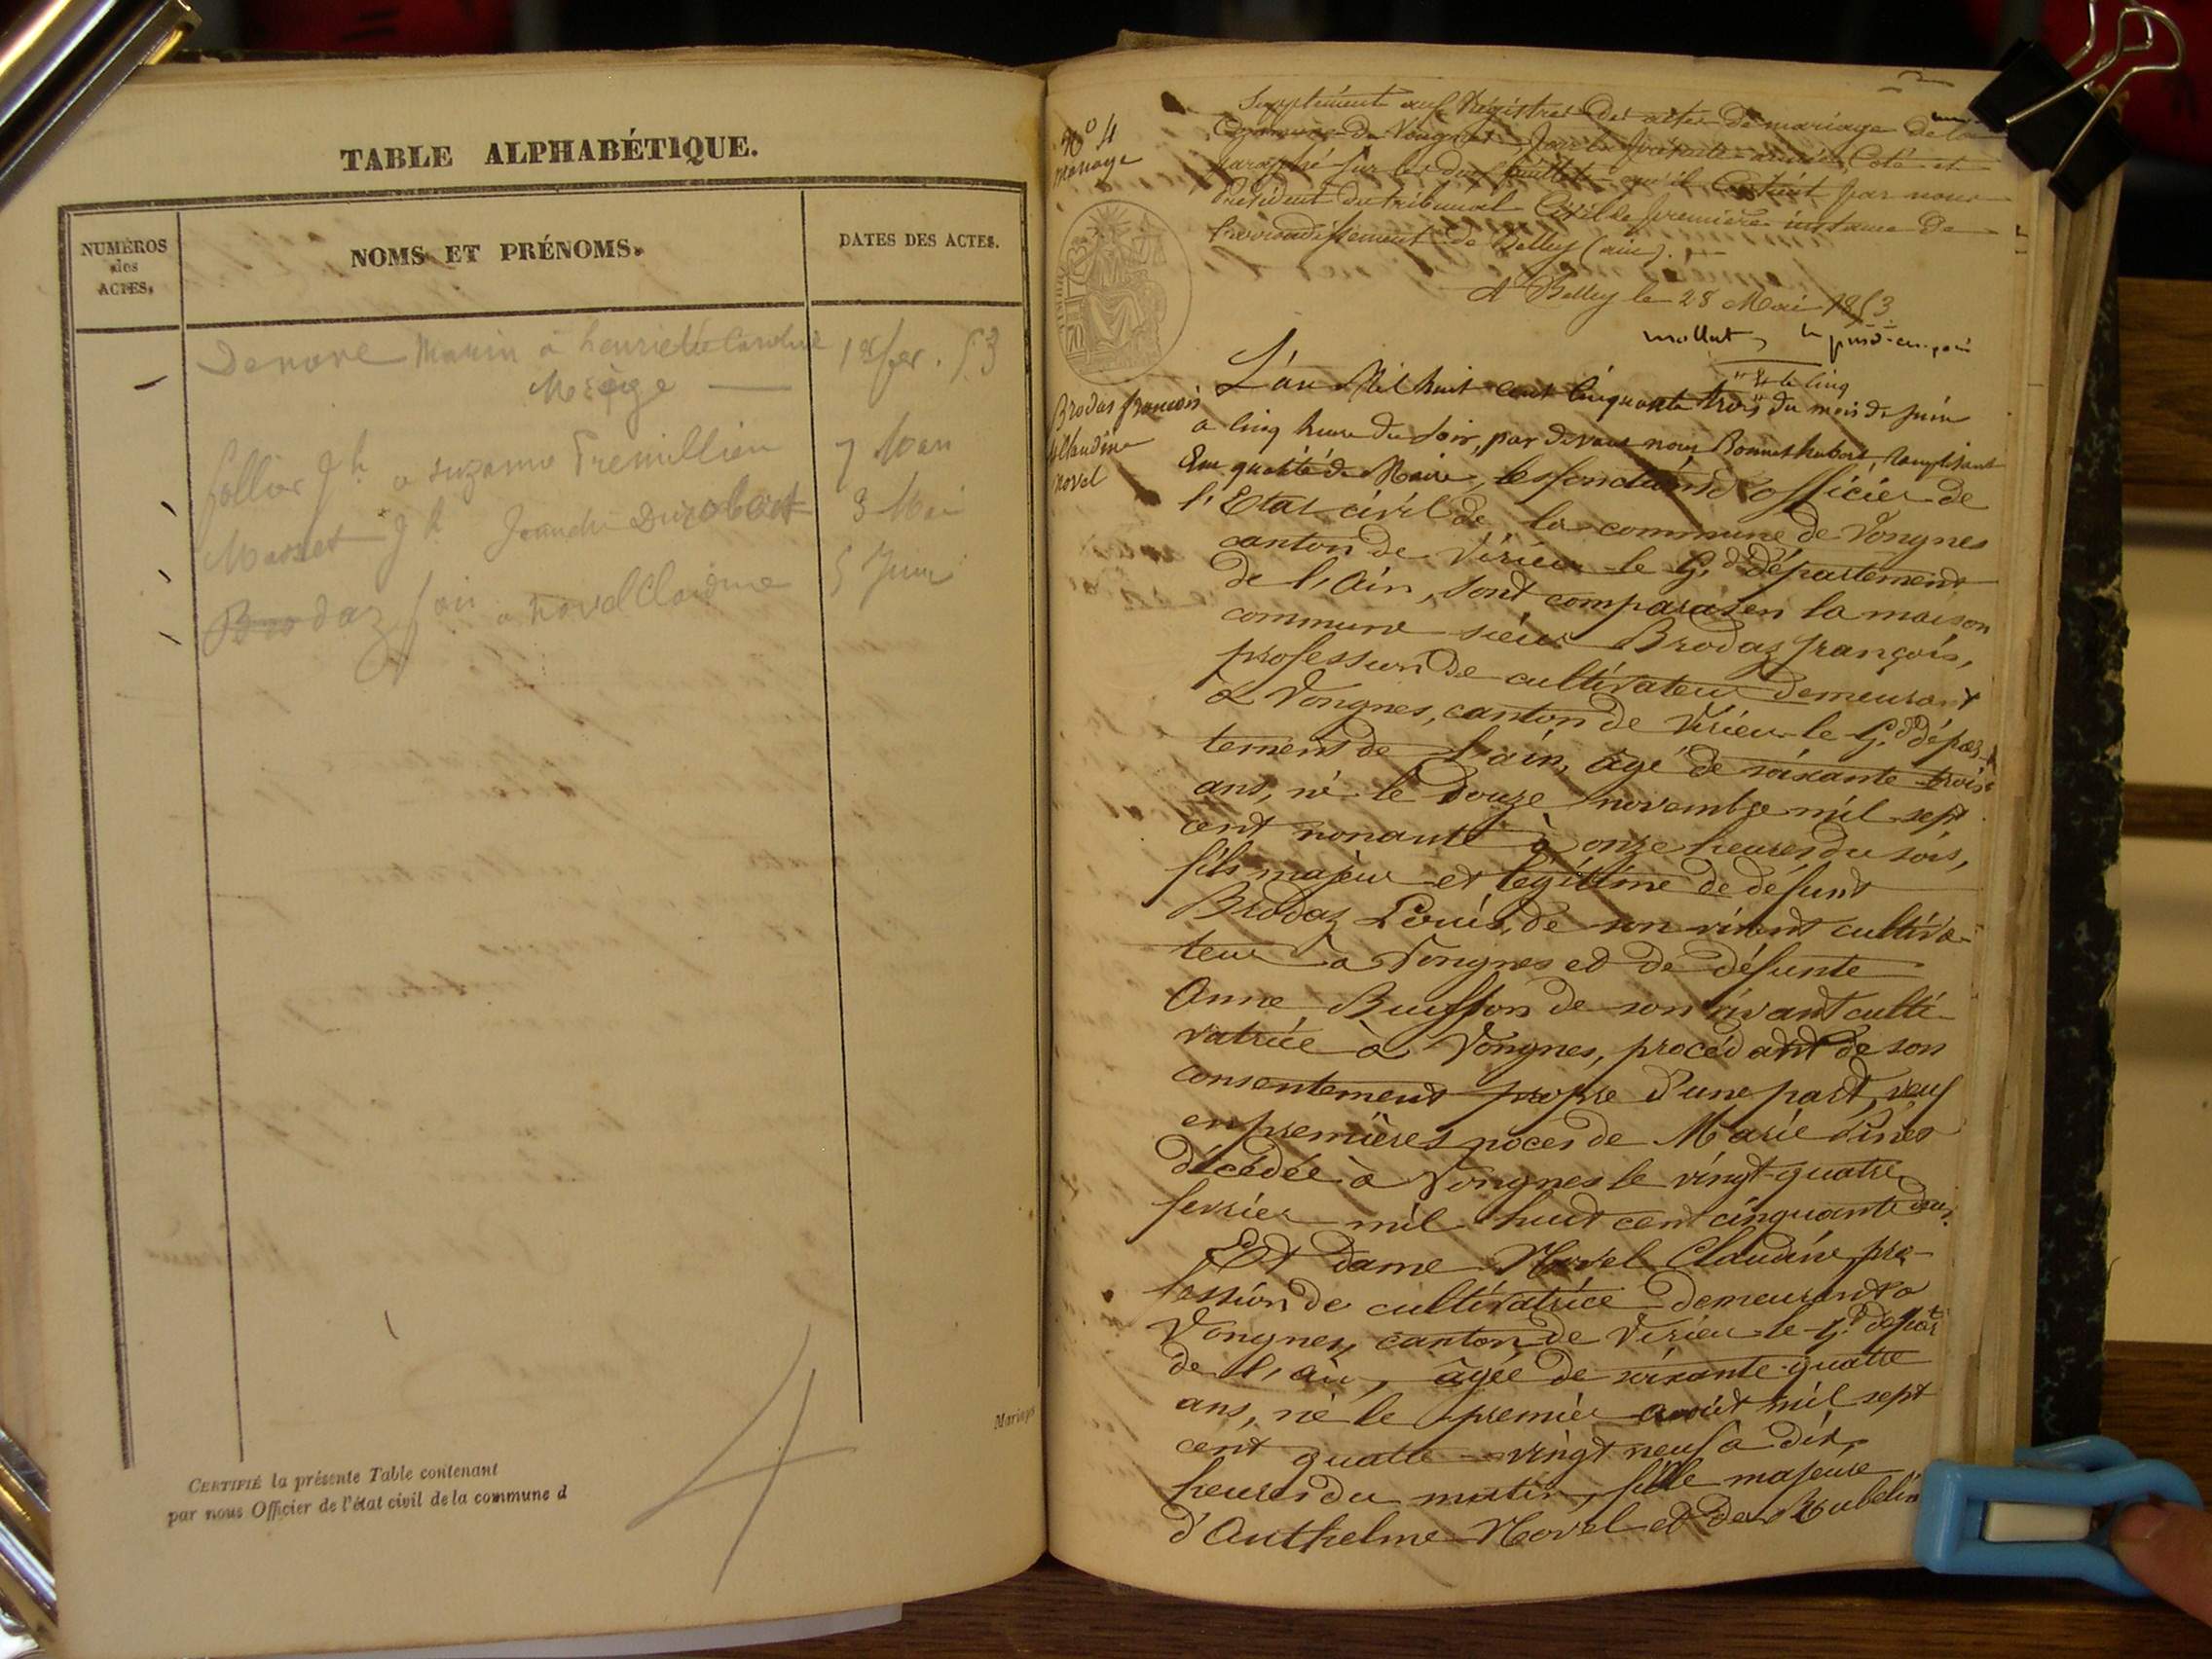 TABLE ALPHABÉTIQUE.
NUMÉROS
des
ACTES.
NOMS ET PRÉNOMS.
DATES DES ACTES.
Marin à henriette Caroline
1er fer. 53
Mrège
à suzanne Tremillieu
7 Mars
Masset
3 Mai
Brodaz à Novel Claudine
5 Juin
CERTIFIÉ la présente Table contenant
par nous Officier de l'état civil de la commune d
4
Mariages
No 4
Mariage
Supplément aux Régistres des actes de mariage de la
commune de Vongnes pour la présente année, Coté et
paraphé sur les deux feuillets qu'il contient par nous
Président du tribunal Civil de première instance de
l'arrondissement de Belley (ain).
A Belley le 28 Mai 1853
Brodas françois
& Claudine
Novel
" & le cinq
L'an Mil huit cent cinquante trois " du mois de Juin
a cinq heure du soir, par devant nous Bonnet hubert Remplisant
En qualité de Maire, les fonctions d'officier de
l'Etat civil de la commune de Vongnes
canton de Virieu-le-Gd département
de l'Ain, sont comparus en la maison
commune sieur Brodaz françois,
profession de cultivateur demeurant
à Vongnes, canton de Virieu-le-Gd dépar-
tement de l'ain, âgé de soixante-trois
ans, né le douze novembre mil sept
cent nonante à onze heures du soir,
fils majeur et légitime de défunt
Brodaz Louis, de son vivant cultiva-
teur à Vongnes et de défunte
Anne Buisson de son vivant culti-
vatrice à Vongnes, procédant de son
consentement propre d'une part, veuf
en premières noces de Marie
décédée à Vongnes le vingt-quatre
fevrier mil huit cent cinquante deux.
Et dame Novel Claudine, pro-
fession de cultivatrice demeurant à
Vongnes, canton de Virieu-le-Gd départ
de l'ain, âgée de soixante-quatre
ans, né le premier avoût mil sept
cent quatre-vingt neuf à dix
heures du matin, fille majeure
d'Anthelme Novel et de Rubelin